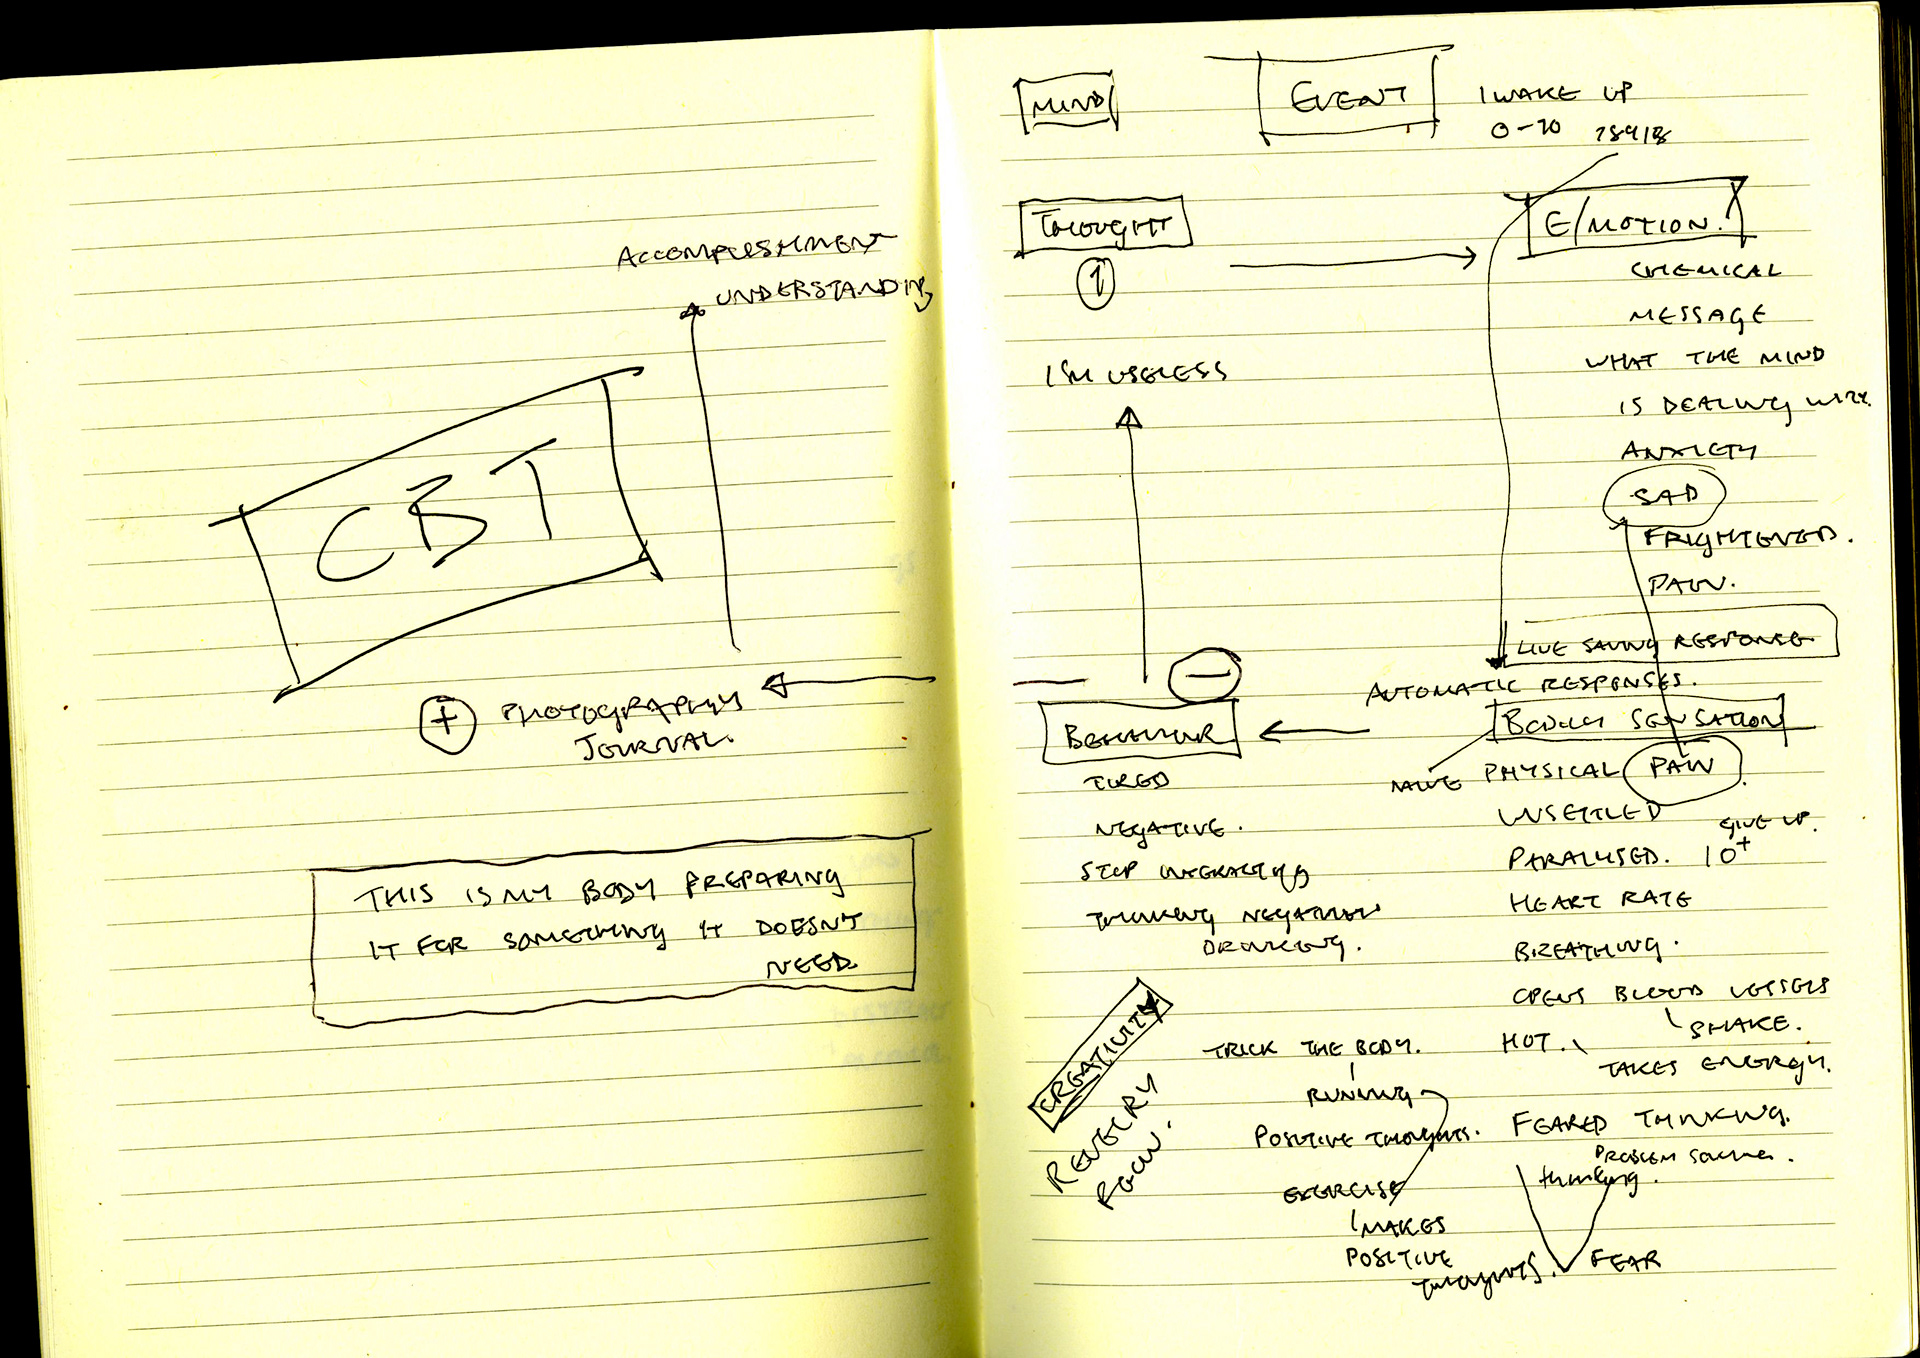 ACCOMPLISHMENT
UNDERSTANDING
CBT
+ PHOTOGRAPHY
JOURNAL.
THIS IS MY BODY PREPARING
IT FOR SOMETHING IT DOESN'T
NEED.
MIND
EVENT
I WAKE UP
0-10
THOUGHT
1
I'M USELESS
E/MOTION.
CHEMICAL
MESSAGE
WHAT THE MIND
IS DEALING WITH.
ANXIETY
SAD
FRIGHTENED.
PAIN.
LIVE SAVING RESPONSE
AUTOMATIC RESPONSES.
BODILY SENSATION
PHYSICAL PAIN
UNSETTLED
GIVE UP.
PARALYSED. 10+
HEART RATE
BREATHING.
OPENS BLOOD VESSELS
SHAKE.
HOT.
TAKES ENERGY.
FEARED THINKING.
PROBLEM SOLVING.
thinking.
FEAR
−
BEHAVIOUR
TIRED
NEGATIVE.
STOP INTERACTING
THINKING NEGATIVE
DRINKING.
CREATIVITY
TRICK THE BODY.
RUNNING
POSITIVE THOUGHTS.
EXERCISE
MAKES
POSITIVE
THOUGHTS.